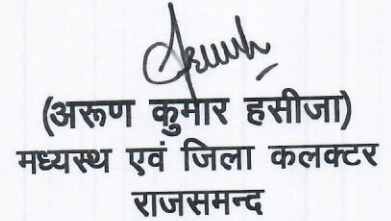 (अरूण कुमार हसीजा)
मध्यस्थ एवं जिला कलक्टर
राजसमन्द